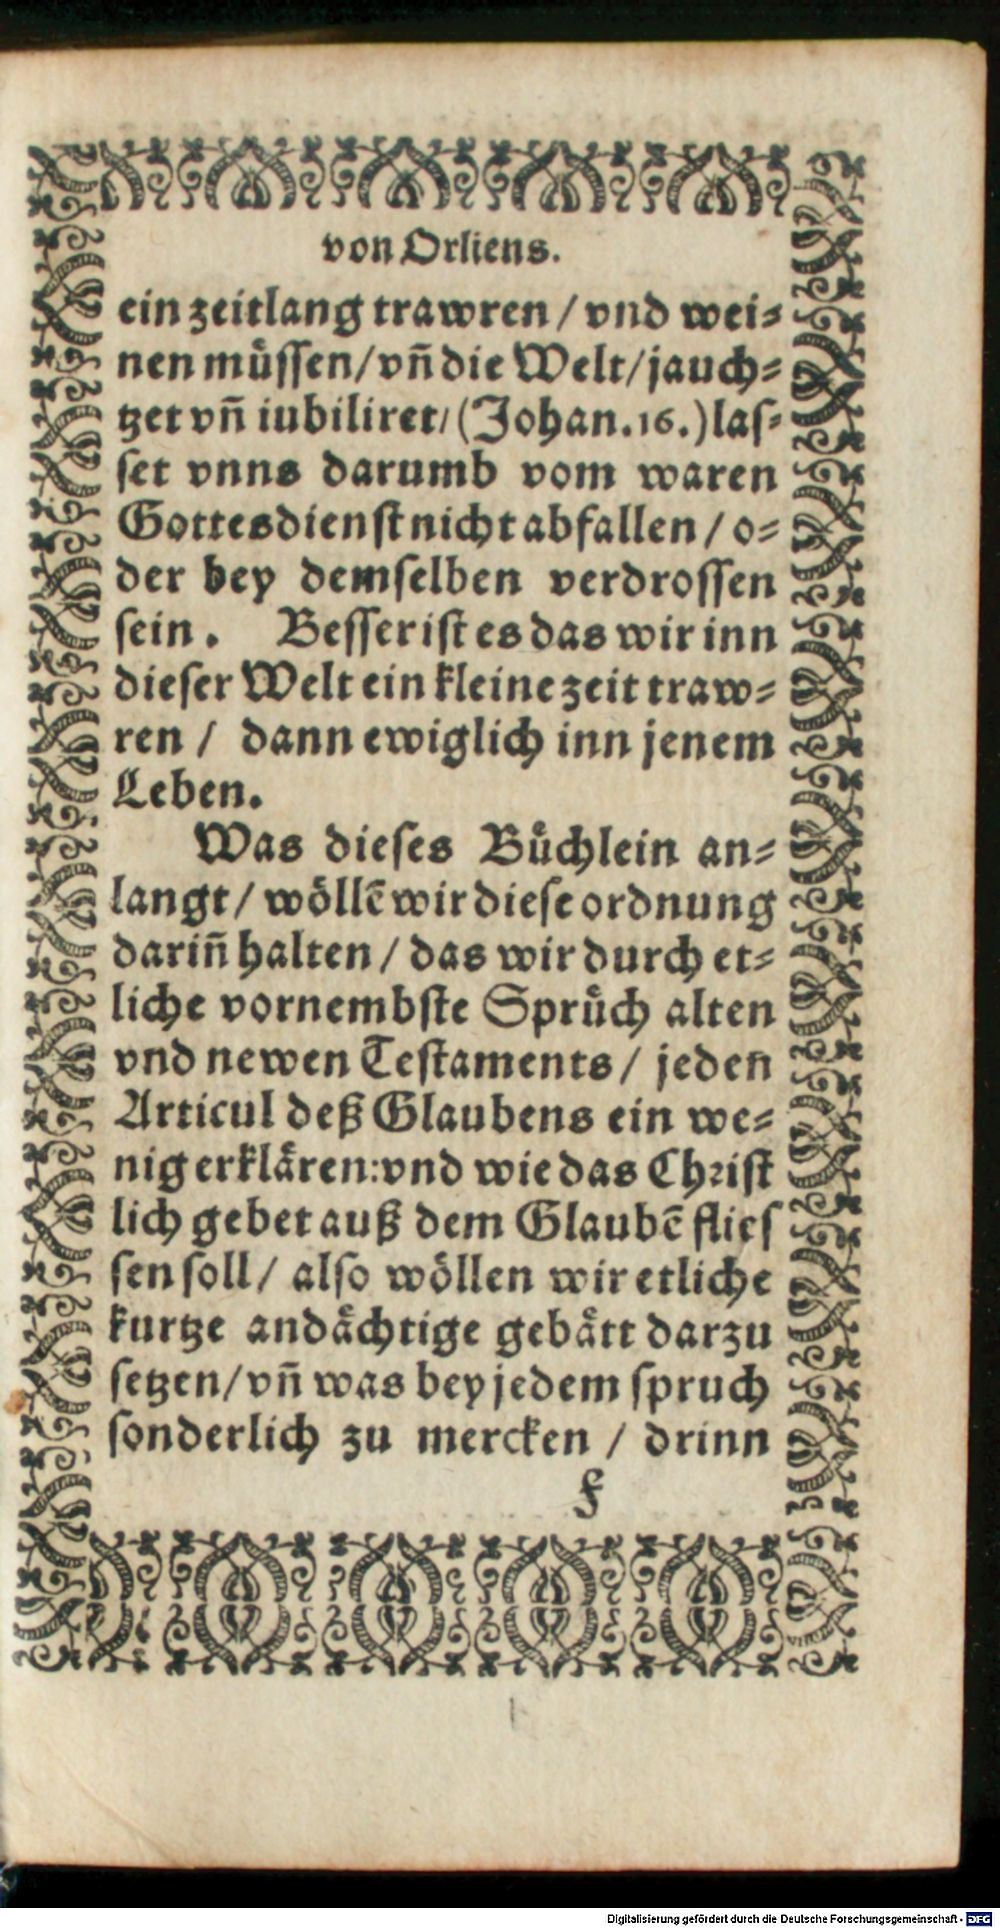 von Orliens.
ein zeitlang trawren / vnd wei⸗
nen muͤſſen/vn̄ die Welt/jauch⸗
tzet vn̄ iubiliret/(Johan.16.)laſ⸗
ſet vnns darumb vom waren
Gottesdienſt nicht abfallen / o⸗
der bey demſelben verdroſſen
ſein. Beſſer iſt es das wir inn
dieſer Welt ein kleine zeit traw⸗
ren / dann ewiglich inn jenem
Leben.
Was dieſes Buͤchlein an⸗
langt/ woͤllē wir dieſe ordnung
darin̄ halten / das wir durch et⸗
liche vornembſte Spruͤch alten
vnd newen Teſtaments / jeden
Articul deß Glaubens ein we⸗
nig erklaͤren:vnd wie das Chꝛiſt
lich gebet auß dem Glaubē flieſ
ſen ſoll/ alſo woͤllen wir etliche
kurtze andaͤchtige gebaͤtt darzu
ſetzen/vn̄ was bey jedem ſpruch
ſonderlich zu mercken / drinn
f
Digitalisierung gefördert durch die Deutsche Forschungsgemeinschaft - DFG